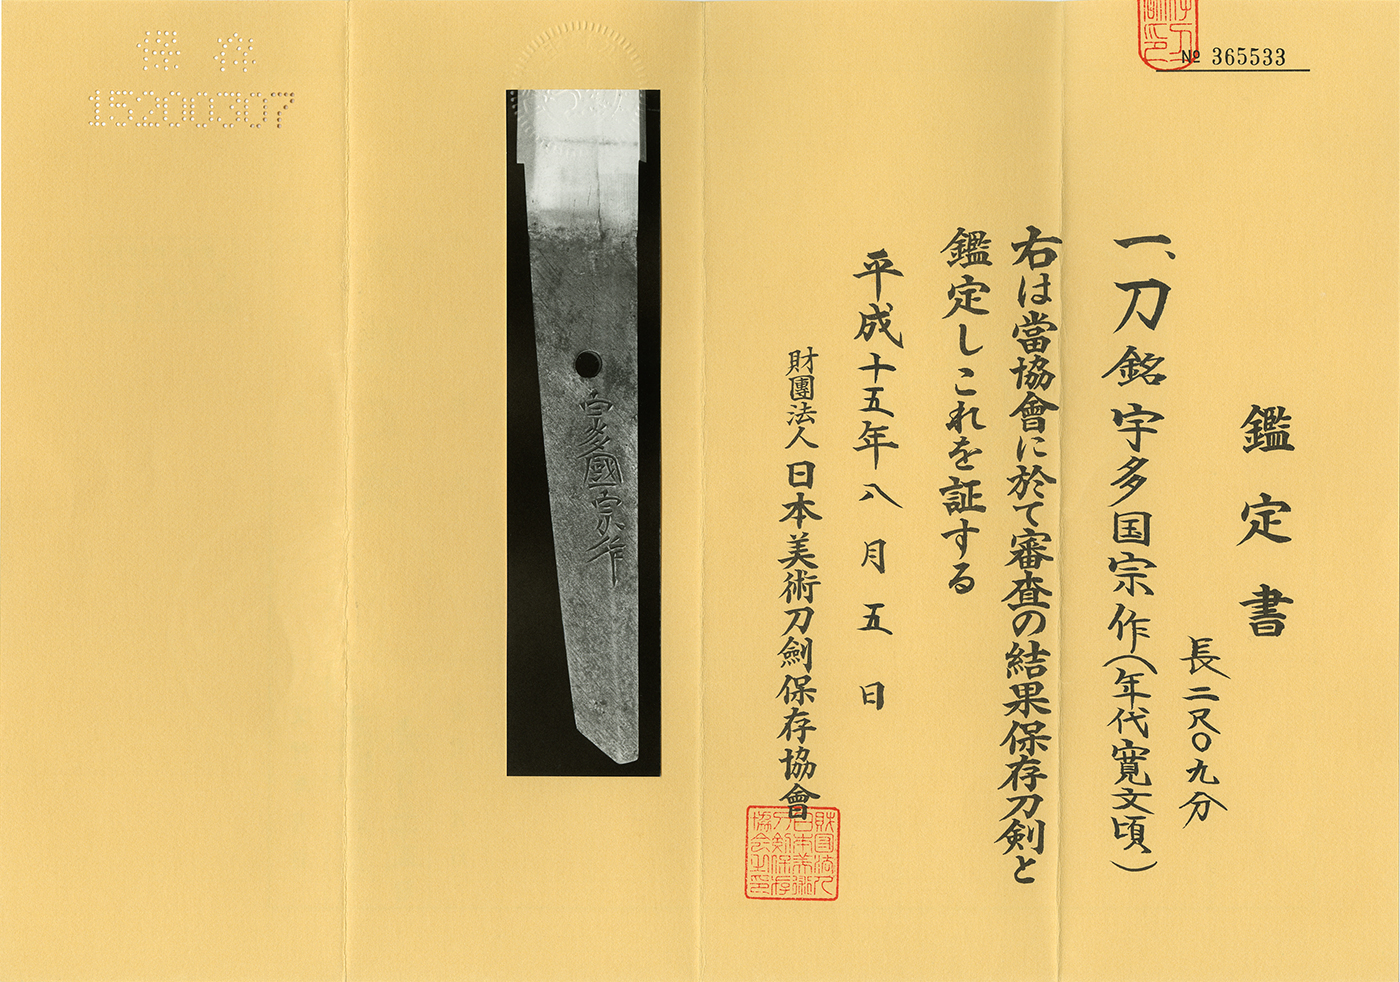 № 365533
鑑定書
長二尺〇九分
一、刀 銘 宇多国宗作(年代寛文頃)
右は當協會に於て審査の結果保存刀剣と
鑑定しこれを証する
平成十五年八月五日
財團法人日本美術刀劍保存協會
財団法人
日本美術
刀剣保存
協会之印
宇多國宗作
保存
15200307